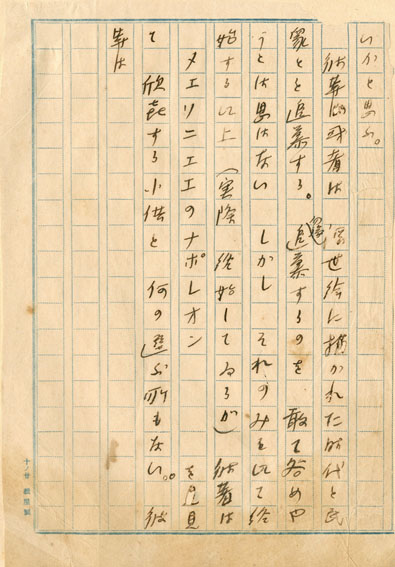 いかと思ふ。
彼等の或者は浮世絵に描かれた時代と民
衆とを追慕する。追慕するのを 敢て咎めや
うとは思はない しかし それのみを以て終
始する以上(実際 終始してゐるが)彼等は
メエリニエエのナポレオン を見
て 欣喜する小供と 何の選ぶ所もない。彼
等は
十ノ廿 松屋製